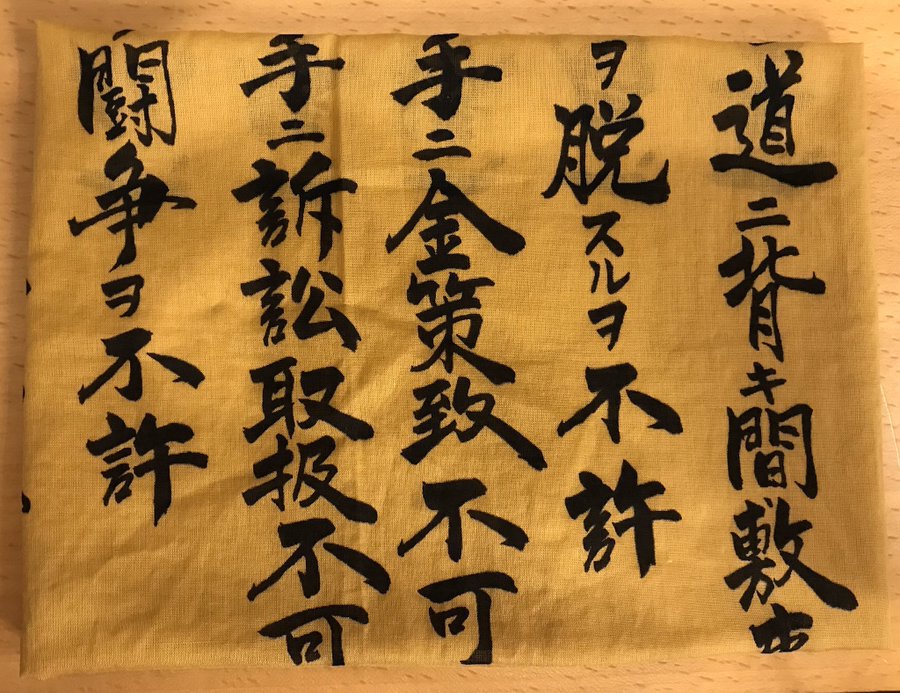 道ニ背キ間敷
ヲ脱スルヲ不許
手ニ金策致不可
手ニ訴訟取扱不可
闘争ヲ不許